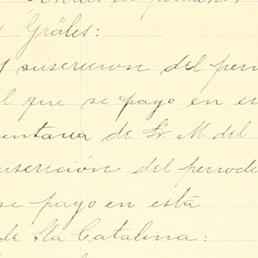 Gráles:
suscricion del peri
l que se pago en e
entaria de Sr. M. del
suscrición del period
se pago en está
de Sta Catalina: